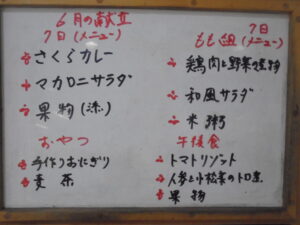 6月の献立
7日(メニュー)
さくらカレー
マカロニサラダ
果物
おやつ
手作りおにぎり
麦茶
7日
もも組(メニュー)
鶏肉と野菜の煮物
和風サラダ
米粥
午後食
トマトリゾット
人参と小松菜のトロ煮
果物